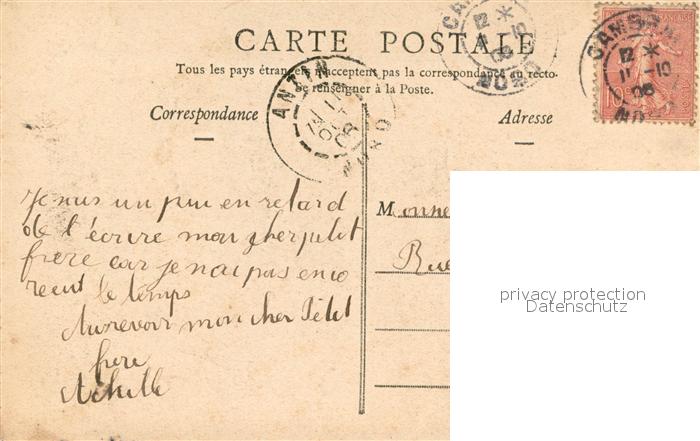 CARTE POSTALE
Tous les pays étrangers n'acceptent pas la correspondance au recto-
Se renseigner à la Poste.
Correspondance
Adresse
CAMBRAI
NORD
CAMBRAI
NORD
ANZIN
NORD
Je suis un peu en retard
de t'écrire mon cher petit
frère car je n'ai pas enco
re eut le temps
Aurevoir mon cher Petit
frère
Achille
M
Rue
privacy protection
Datenschutz